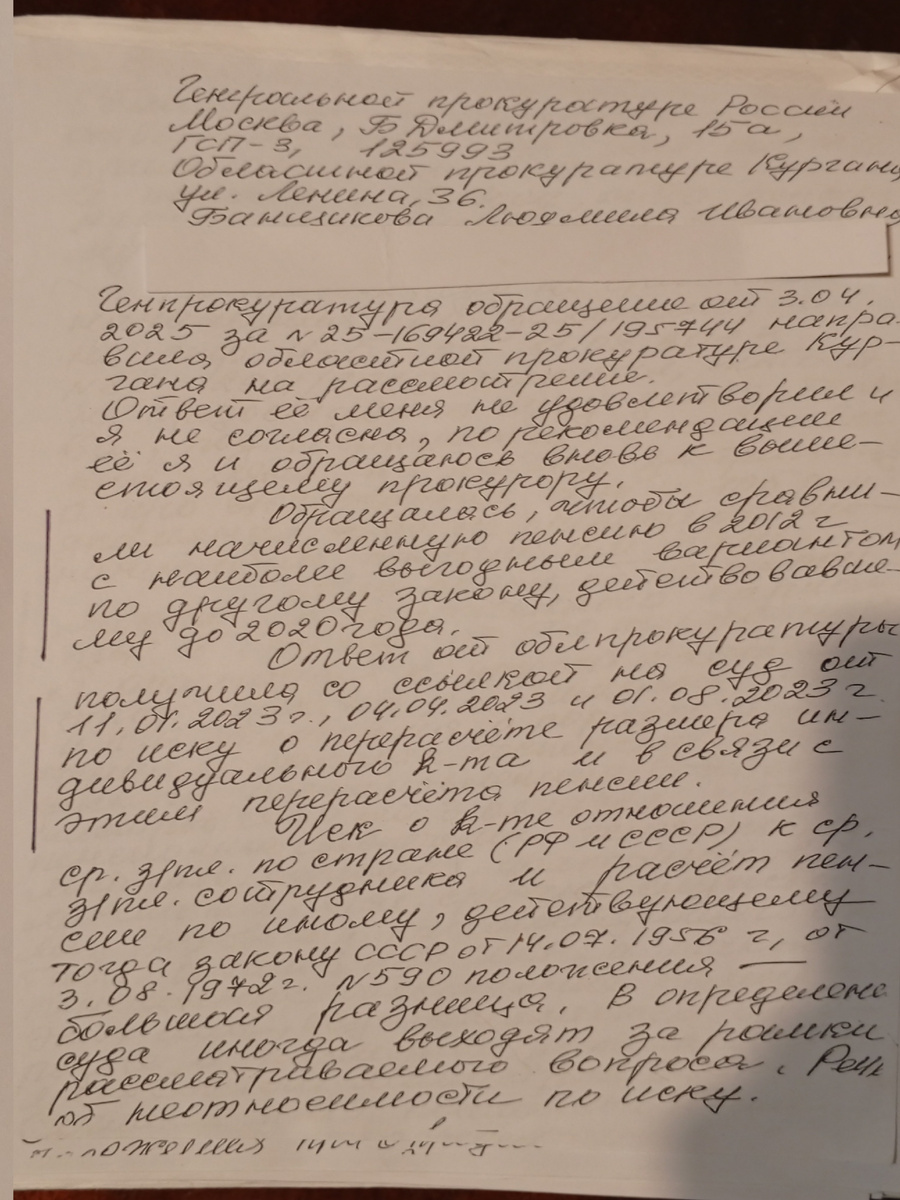 Генеральной прокуратуре России
Москва, Б Дмитровка, 15а,
ГСП-3, 125993
Областной прокуратуре Кургана
ул. Ленина, 36.
Банщикова Людмила Ивановна
Генпрокуратура обращение от 3.04.
2025 за №25-169422-25/195744 напра-
вила областной прокуратуре Кур-
гана на рассмотрение.
Ответ её меня не удовлетворил и
я не согласна, по рекомендации
её я и обращаюсь вновь к выше-
стоящему прокурору.
Обращалась, чтобы сравни-
ли начисленную пенсию в 2012 г
с наиболее выгодным вариантом
по другому закону, действовавше-
му до 2020 года.
Ответ от облпрокуратуры
получила со ссылкой на суд от
11.01.2023 г., 04.04.2023 и 01.08.2023 г.
по иску о перерасчёте размера ин-
дивидуального к-та и в связи с
этим перерасчёта пенсии.
Иск о к-те отношения
ср. з/пл. по стране (РФ и СССР) к ср.
з/пл. сотрудника и расчёт пен-
сии по иному, действующему
тогда закону СССР от 14.07.1956 г, от
3.08.1972 г. №590 положения —
большая разница. В определении
суда иногда выходят за рамки
рассматриваемого вопроса. Речь
об неотносимости по иску.